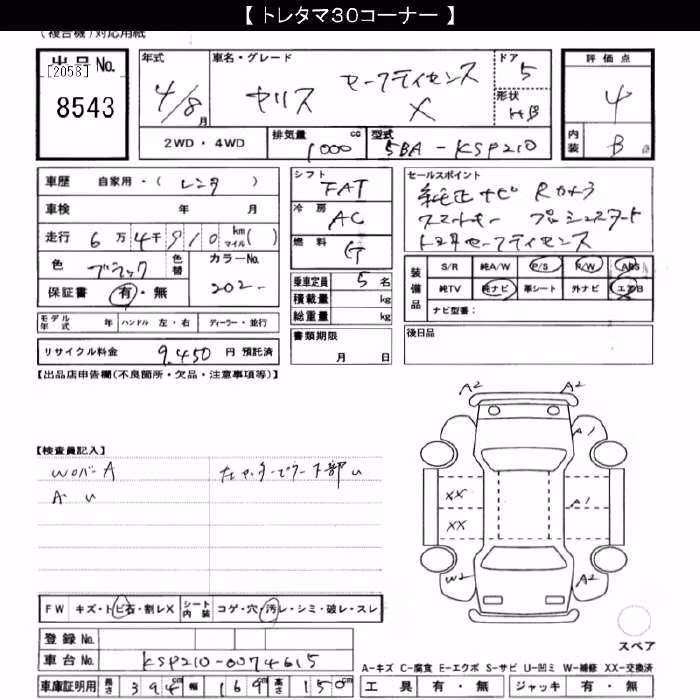 【 トレタマ30コーナー 】
(複合機)対応用紙
出品No.
[2058]
8543
年式
4/8月
車名・グレード
ヤリス セーフティセンス X
ドア
5
形状
HB
評価点
4
内装
B
2WD・4WD
排気量
1000 cc
型式
5BA-KSP210
車歴 自家用・( レンタ )
車検 年 月
走行 6万4千910 km マイル( )
色 ブラック 色替 カラーNo. 202-
保証書 有・無
モデル年式 年 ハンドル 左・右 ディーラー・並行
リサイクル料金 9,450 円 預託済
シフト
FAT
冷房
AC
燃料
G
乗車定員 5 名
積載量 kg
総重量 kg
書類期限
月 日
セールスポイント
純正ナビ Rカメラ
スマートキー プッシュスタート
トヨタセーフティセンス
装備品
S/R 純A/W P/S R/W ABS
純TV 純ナビ 革シート 外ナビ エアB
ナビ型番:
後日品
【出品店申告欄(不良箇所・欠品・注意事項等)】
【検査員記入】
WOバーA
A・U
A2 A2
A1
XX A1
XX
W2 A2
スペア
FW キズ・トビ石・割レX シート内装 コゲ・穴・汚レ・シミ・破レ・スレ
登録No.
車台No. KSP210-0074615
車庫証明用 長さ 394cm 幅 169cm 高さ 150cm
A-キズ C-腐食 E-エクボ S-サビ U-凹ミ W-補修 XX-交換済
工具 有・無 ジャッキ 有・無